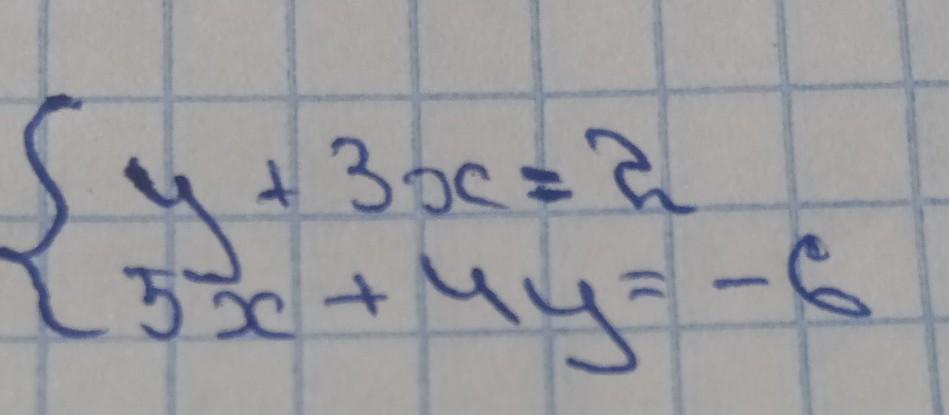 y + 3x = 2
5x + 4y = - 6